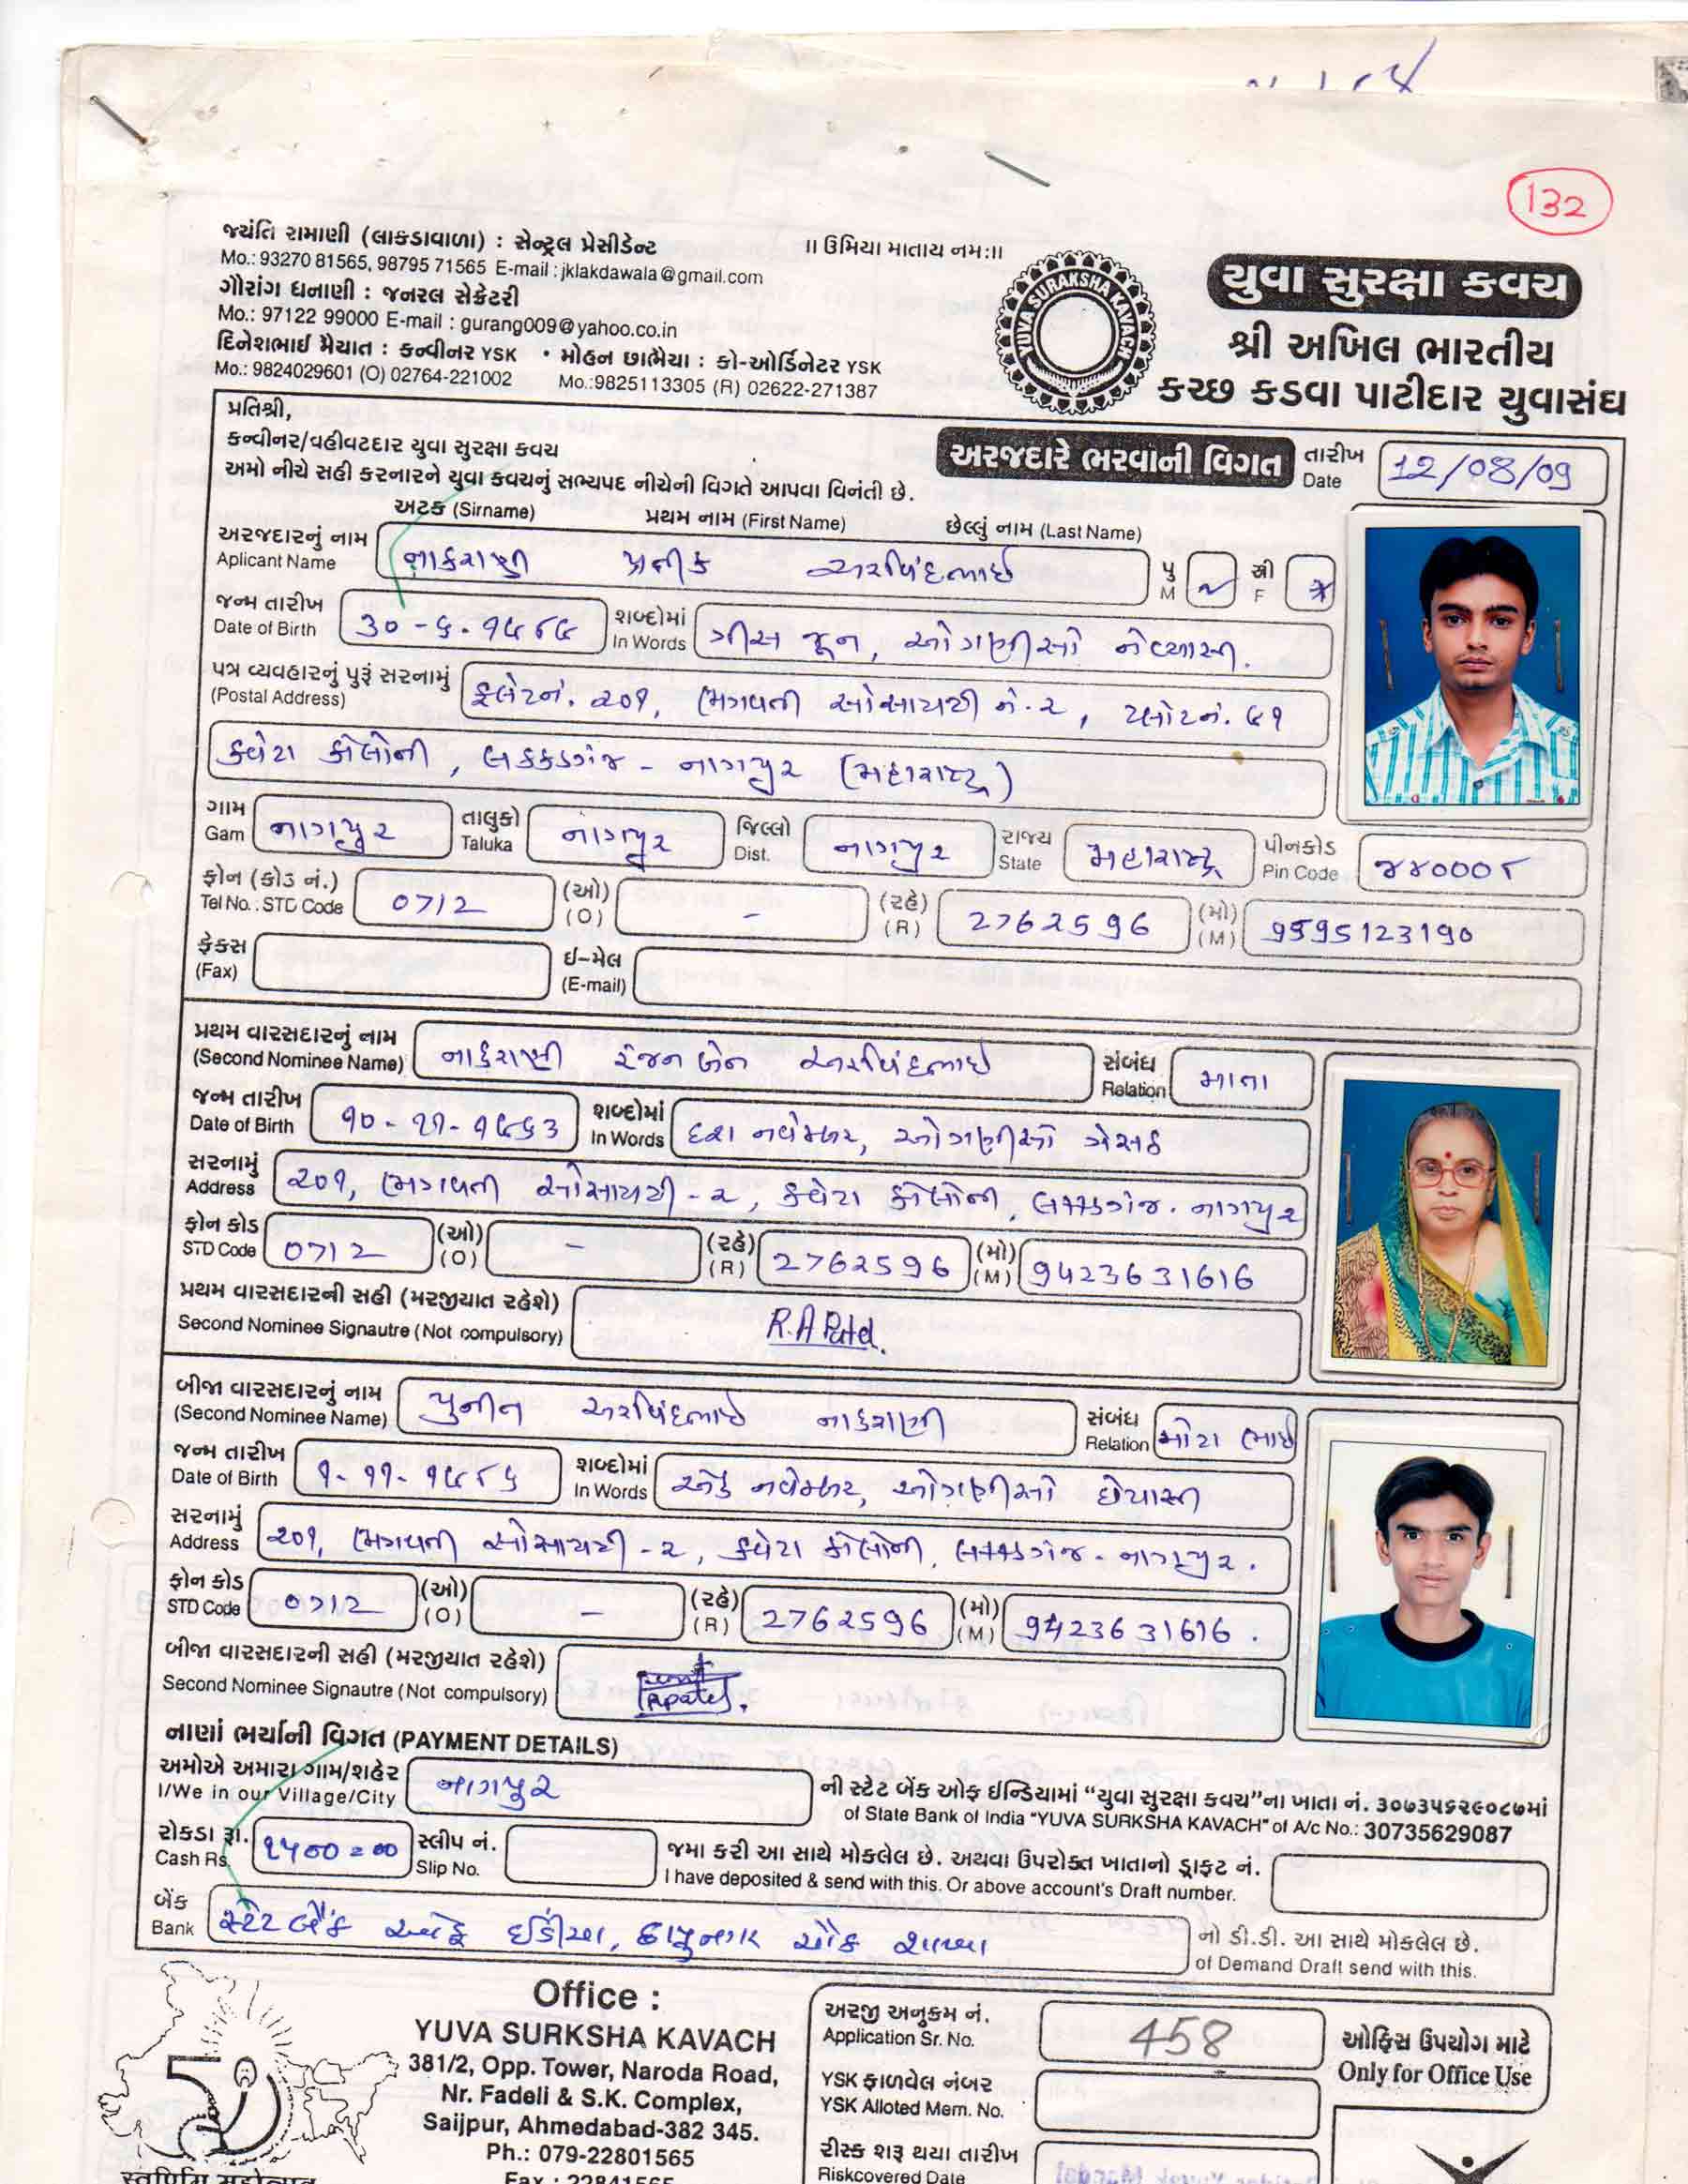 132
જયંતિ રામાણી (લાકડાવાળા) : સેન્ટ્રલ પ્રેસીડેન્ટ
Mo.: 93270 81565, 98795 71565 E-mail : jklakdawala@gmail.com
ગૌરાંગ ધનાણી : જનરલ સેક્રેટરી
Mo.: 97122 99000 E-mail : gurang009@yahoo.co.in
દિનેશભાઈ મૈયાત : કન્વીનર YSK • મોહન છાભૈયા : કો-ઓર્ડિનેટર YSK
Mo.: 9824029601 (O) 02764-221002 Mo.:9825113305 (R) 02622-271387
॥ ઉમિયા માતાય નમઃ॥
YUVA SURAKSHA KAVACH
યુવા સુરક્ષા કવચ
શ્રી અખિલ ભારતીય
કચ્છ કડવા પાટીદાર યુવાસંઘ
પ્રતિશ્રી,
કન્વીનર/વહીવટદાર યુવા સુરક્ષા કવચ
અમો નીચે સહી કરનારને યુવા કવચનું સભ્યપદ નીચેની વિગતે આપવા વિનંતી છે.
અરજદારે ભરવાની વિગત તારીખ Date 12/08/09
અટક (Sirname) પ્રથમ નામ (First Name) છેલ્લું નામ (Last Name)
અરજદારનું નામ Aplicant Name નાકરાણી પ્રતીક અરવિંદભાઈ પુ M સ્ત્રી F
જન્મ તારીખ Date of Birth ૩૦-૬-૧૯૮૯ શબ્દોમાં In Words ત્રીસ જૂન, ઓગણીસો નેવ્યાસી.
પત્ર વ્યવહારનું પુરૂં સરનામું (Postal Address) ફ્લેટનં. ૨૦૧, ભગવતી સોસાયટી નં-૨, પ્લોટનં. ૯૧
ક્વેટા કોલોની, લકકડગંજ - નાગપુર (મહારાષ્ટ્ર)
ગામ Gam નાગપુર તાલુકો Taluka નાગપુર જિલ્લો Dist. નાગપુર રાજ્ય State મહારાષ્ટ્ર પીનકોડ Pin Code ૪૪૦૦૦૮
ફોન (કોડ નં.) Tel No.: STD Code 0712 (ઓ) (O) - (રહે) (R) 2762596 (મો) (M) 9595123190
ફેકસ (Fax) ઈ-મેલ (E-mail)
પ્રથમ વારસદારનું નામ (Second Nominee Name) નાકરાણી રંજનબેન અરવિંદભાઈ સંબંધ Relation માતા
જન્મ તારીખ Date of Birth ૧૦-૧૧-૧૯૬૩ શબ્દોમાં In Words દશ નવેમ્બર, ઓગણીસો ત્રેસઠ
સરનામું Address ૨૦૧, ભગવતી સોસાયટી-૨, ક્વેટા કોલોની, લક્કડગંજ. નાગપુર
ફોન કોડ STD Code 0712 (ઓ) (O) - (રહે) (R) 2762596 (મો) (M) 9423631616
પ્રથમ વારસદારની સહી (મરજીયાત રહેશે)
Second Nominee Signautre (Not compulsory) R.A Patel.
બીજા વારસદારનું નામ (Second Nominee Name) પુનીત અરવિંદભાઈ નાકરાણી સંબંધ Relation મોટા ભાઈ
જન્મ તારીખ Date of Birth ૧-૧૧-૧૯૮૬ શબ્દોમાં In Words એક નવેમ્બર, ઓગણીસો છયાસી
સરનામું Address ૨૦૧, ભગવતી સોસાયટી-૨, ક્વેટા કોલોની, લક્કડગંજ- નાગપુર.
ફોન કોડ STD Code 0712 (ઓ) (O) - (રહે) (R) 2762596 (મો) (M) 9423631616.
બીજા વારસદારની સહી (મરજીયાત રહેશે)
Second Nominee Signautre (Not compulsory)
નાણાં ભર્યાની વિગત (PAYMENT DETAILS)
અમોએ અમારા ગામ/શહેર I/We in our Village/City નાગપુર ની સ્ટેટ બેંક ઓફ ઈન્ડિયામાં "યુવા સુરક્ષા કવચ"ના ખાતા નં. ૩૦૭૩૫૬૨૯૦૮૭માં
of State Bank of India "YUVA SURKSHA KAVACH" of A/c No.: 30735629087
રોકડા રૂા. Cash Rs. ૧૫૦૦=૦૦ સ્લીપ નં. Slip No. જમા કરી આ સાથે મોકલેલ છે. અથવા ઉપરોક્ત ખાતાનો ડ્રાફટ નં.
I have deposited & send with this. Or above account's Draft number.
બેંક Bank સ્ટેટ બેંક ઓફ ઈંડીયા, ચોક શાખા નો ડી.ડી. આ સાથે મોકલેલ છે.
of Demand Draft send with this.
50
Office :
YUVA SURKSHA KAVACH
381/2, Opp. Tower, Naroda Road,
Nr. Fadeli & S.K. Complex,
Saijpur, Ahmedabad-382 345.
Ph.: 079-22801565
Fax : 22841565
અરજી અનુક્રમ નં. Application Sr. No. 458
YSK ફાળવેલ નંબર YSK Alloted Mem. No.
રીસ્ક શરૂ થયા તારીખ Riskcovered Date
ઓફિસ ઉપયોગ માટે
Only for Office Use